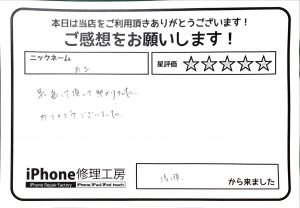 本日は当店をご利用頂きありがとうございます！
ご感想をお願いします！
ニックネーム
星評価 ☆☆☆☆☆
て頂いて助かりました。
ありがとうございました。
iPhone修理工房
iPhone Repair Factory iPhone/iPad/iPod touch
から来ました